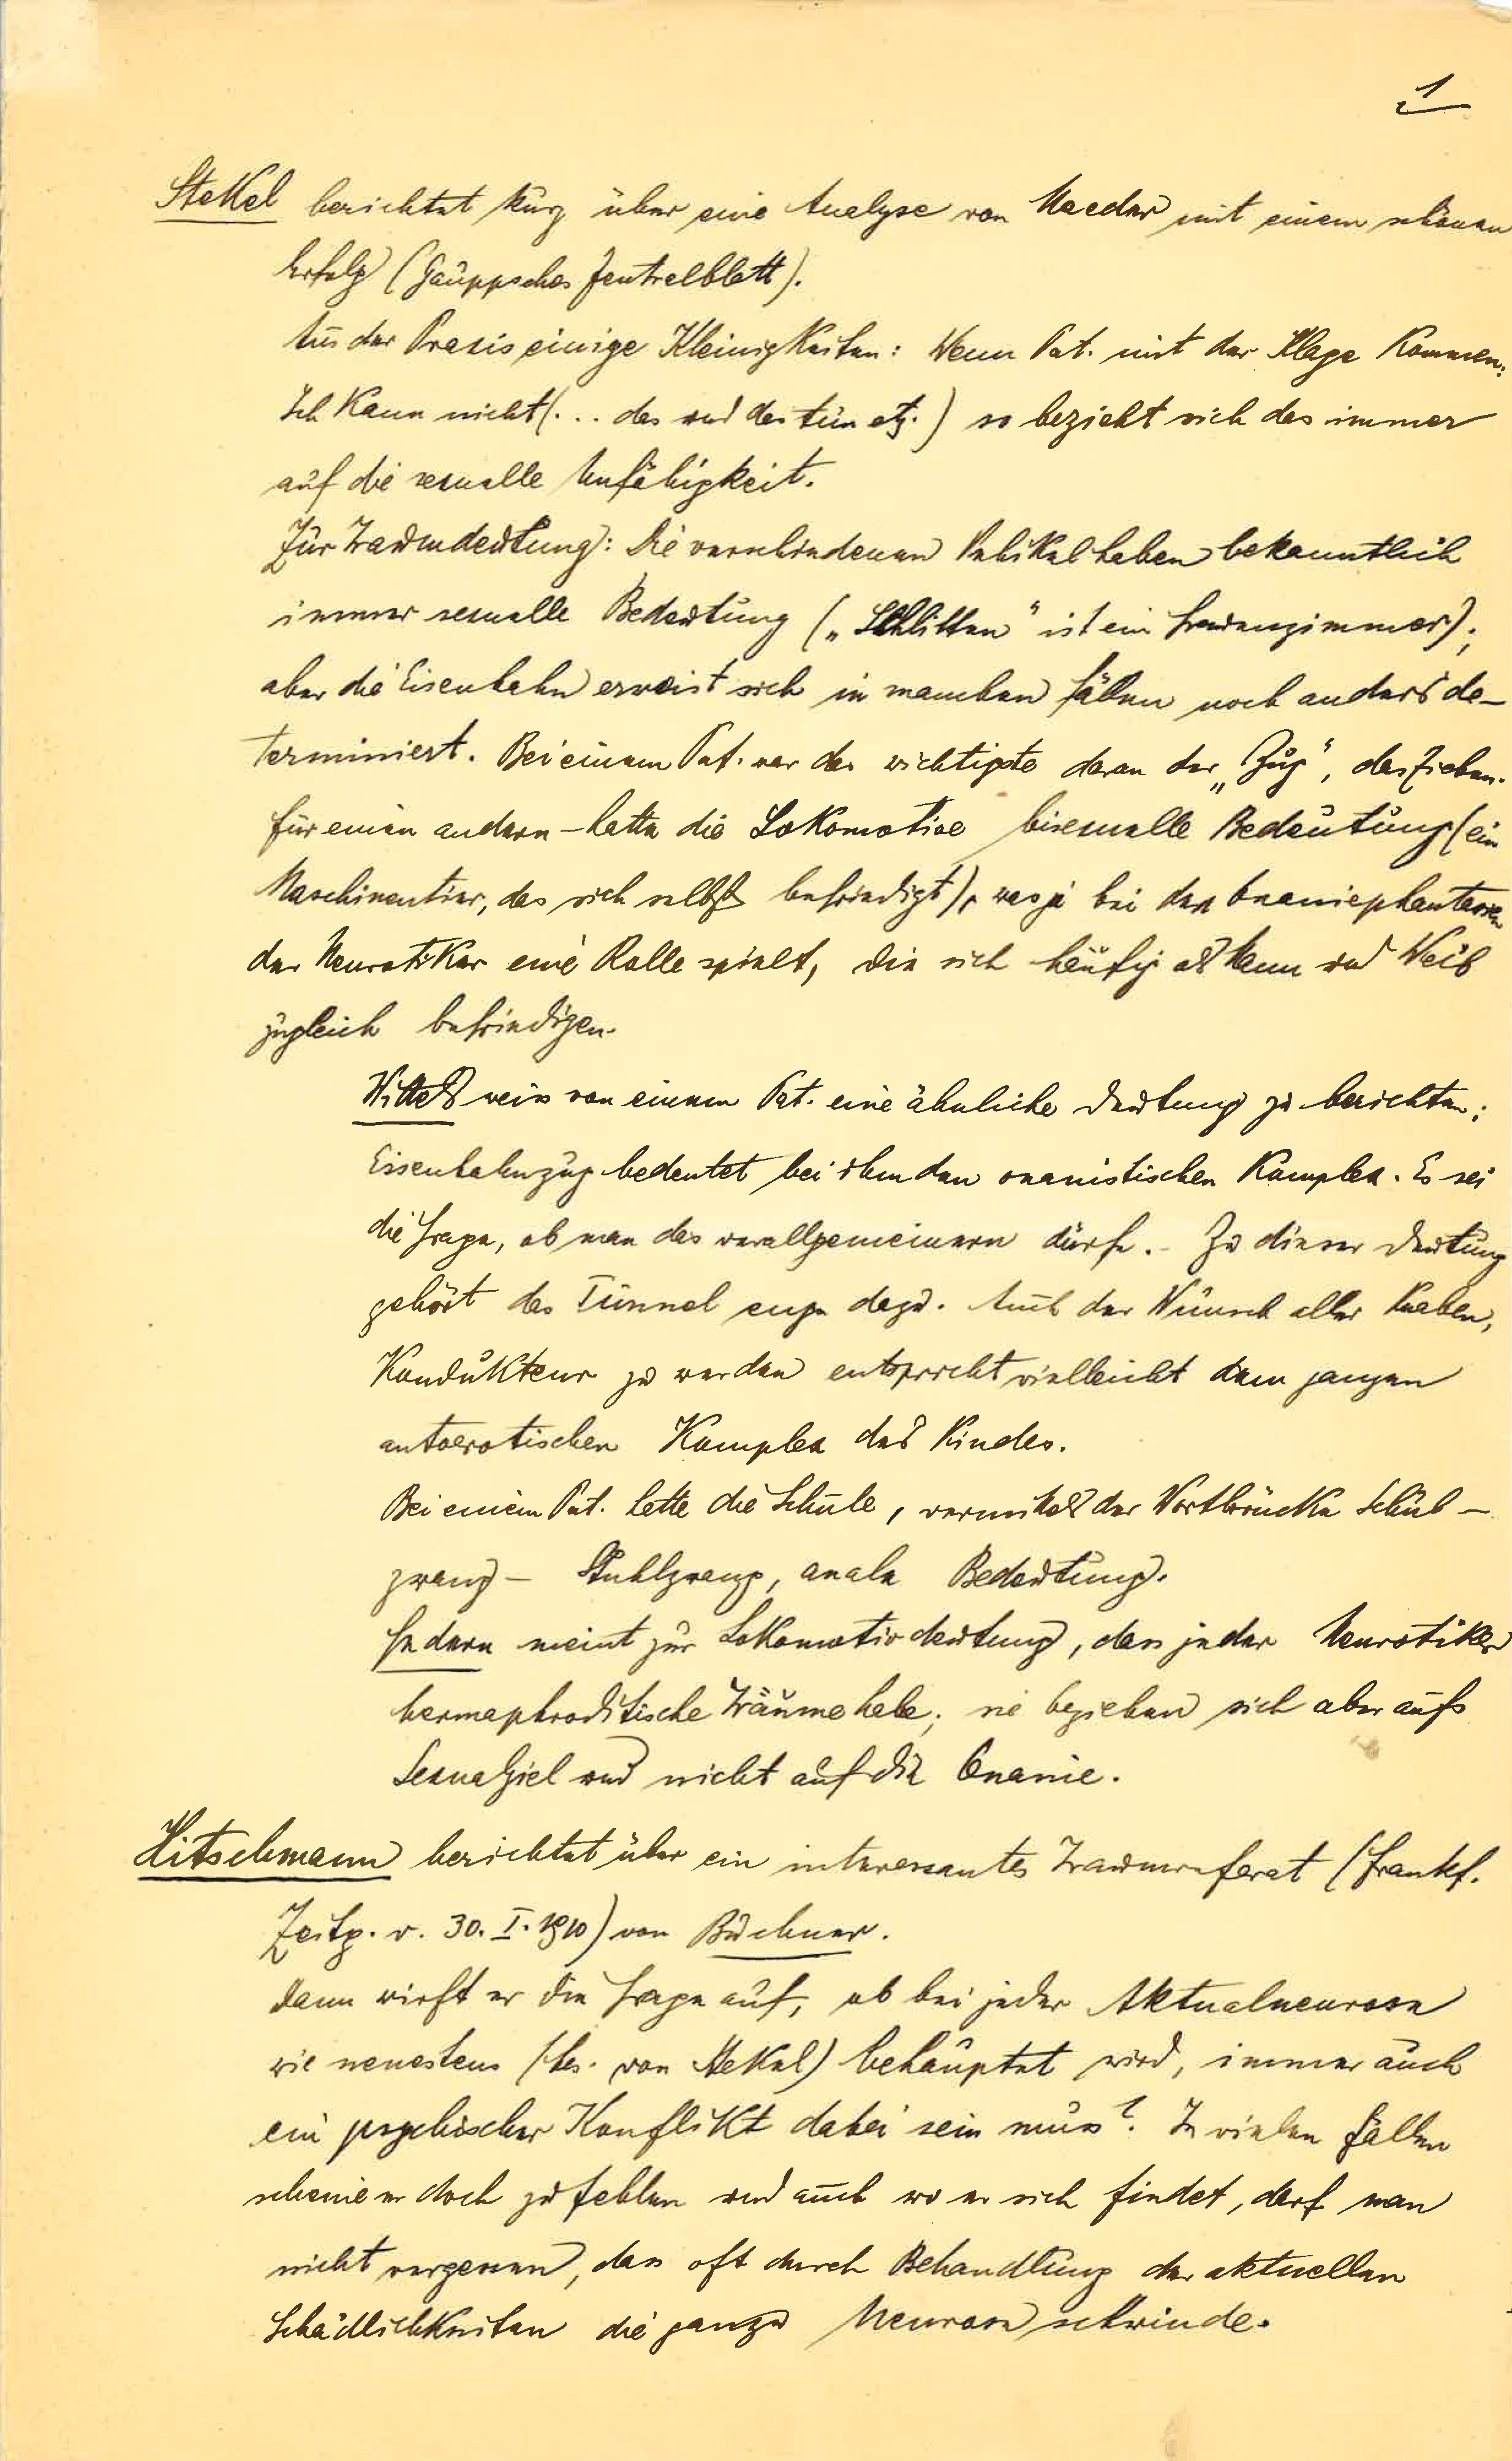 1
Stekel berichtet kurz über eine Analyse von Maeder mit einem schönen
Erfolg (Gauppsches Zentralblatt).
Aus der Praxis einige Kleinigkeiten: Wenn Pat. mit der Klage kommen:
Ich kann nicht (... das und das tun etz.) so bezieht sich das immer
auf die sexuelle Unfähigkeit.
Zur Traumdeutung: Die verschiedenen Vehikel haben bekanntlich
immer sexuelle Bedeutung („Schlitten" ist ein Frauenzimmer);
aber die Eisenbahn erweist sich in manchen Fällen noch anders de-
terminiert. Bei einem Pat. war das wichtigste daran der „Zug", das Ziehen.
Für einen andern – hatte die Lokomotive bisexuelle Bedeutung (ein
Maschinentier, das sich selbst befriedigt), was ja bei den Onaniephantasien
der Neurotiker eine Rolle spielt, die sich häufig als Mann und Weib
zugleich befriedigen.
Wittels weiss von einem Pat. eine ähnliche Deutung zu berichten;
Eisenbahnzug bedeutet bei ihm den onanistischen Komplex. Es sei
die Frage, ob man das verallgemeinern dürfe. – Zu dieser Deutung
gehört das Tunnel eng dazu. Auch der Wunsch aller Knaben,
Kondukteur zu werden entspricht vielleicht dem ganzen
autoerotischen Komplex des Kindes.
Bei einem Pat. hatte die Schule, vermittels der Wortbrücke Schul –
zwang – Stuhlzwang, anale Bedeutung.
Federn meint zur Lokomotivdeutung, dass jeder Neurotiker
hermaphroditische Träume habe; sie beziehen sich aber aufs
Sexualziel und nicht auf die Onanie.
Hitschmann berichtet über ein interessantes Traumreferat (Frankf.
Zeitg. v. 30. I. 1910) von Büchner.
Dann wirft er die Frage auf, ob bei jeder Aktualneurose
wie neuestens (bes. von Stekel) behauptet wird, immer auch
ein psychischer Konflikt dabei sein muss? In vielen Fällen
scheine er doch zu fehlen und auch wo er sich findet, darf man
nicht vergessen, dass oft durch Behandlung der aktuellen
Schädlichkeiten die ganze Neurose schwinde.